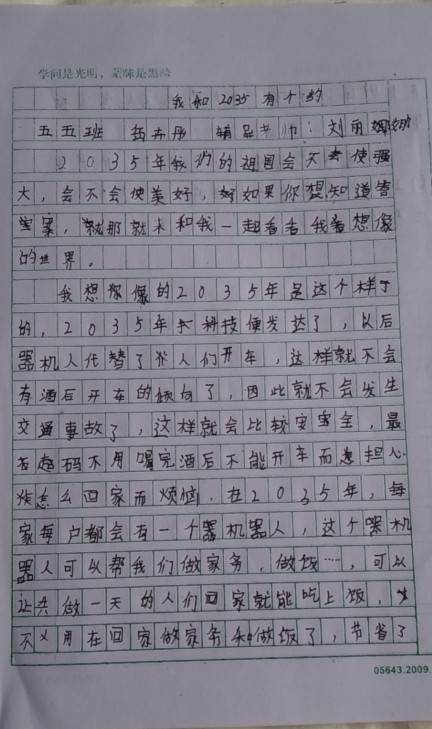 学问是光明，蒙昧是黑暗
我和2035有个约
五五班 辅导老师：刘丽娜
2035年我们的祖国会不会使强
大，会不会使美好，如果你想知道答
案，就那就来和我一起看看我看想像
的世界。
我想像的2035年是这个样子
的，2035年长科技便发达了，以后
器机人代替了人们开车，这样就不会
有酒后开车的倾向了，因此就不会发生
交通事故了，这样就会比较安全，最
起码不用喝完酒后不能开车而担心
怎么回家而烦恼。在2035年，每
家每户都会有一个器机器人，这个机
器人可以帮我们做家务，做饭……，可以
让做一天的人们回家就能吃上饭，
不用在回家做家务和做饭了，节省了
05643.2009.